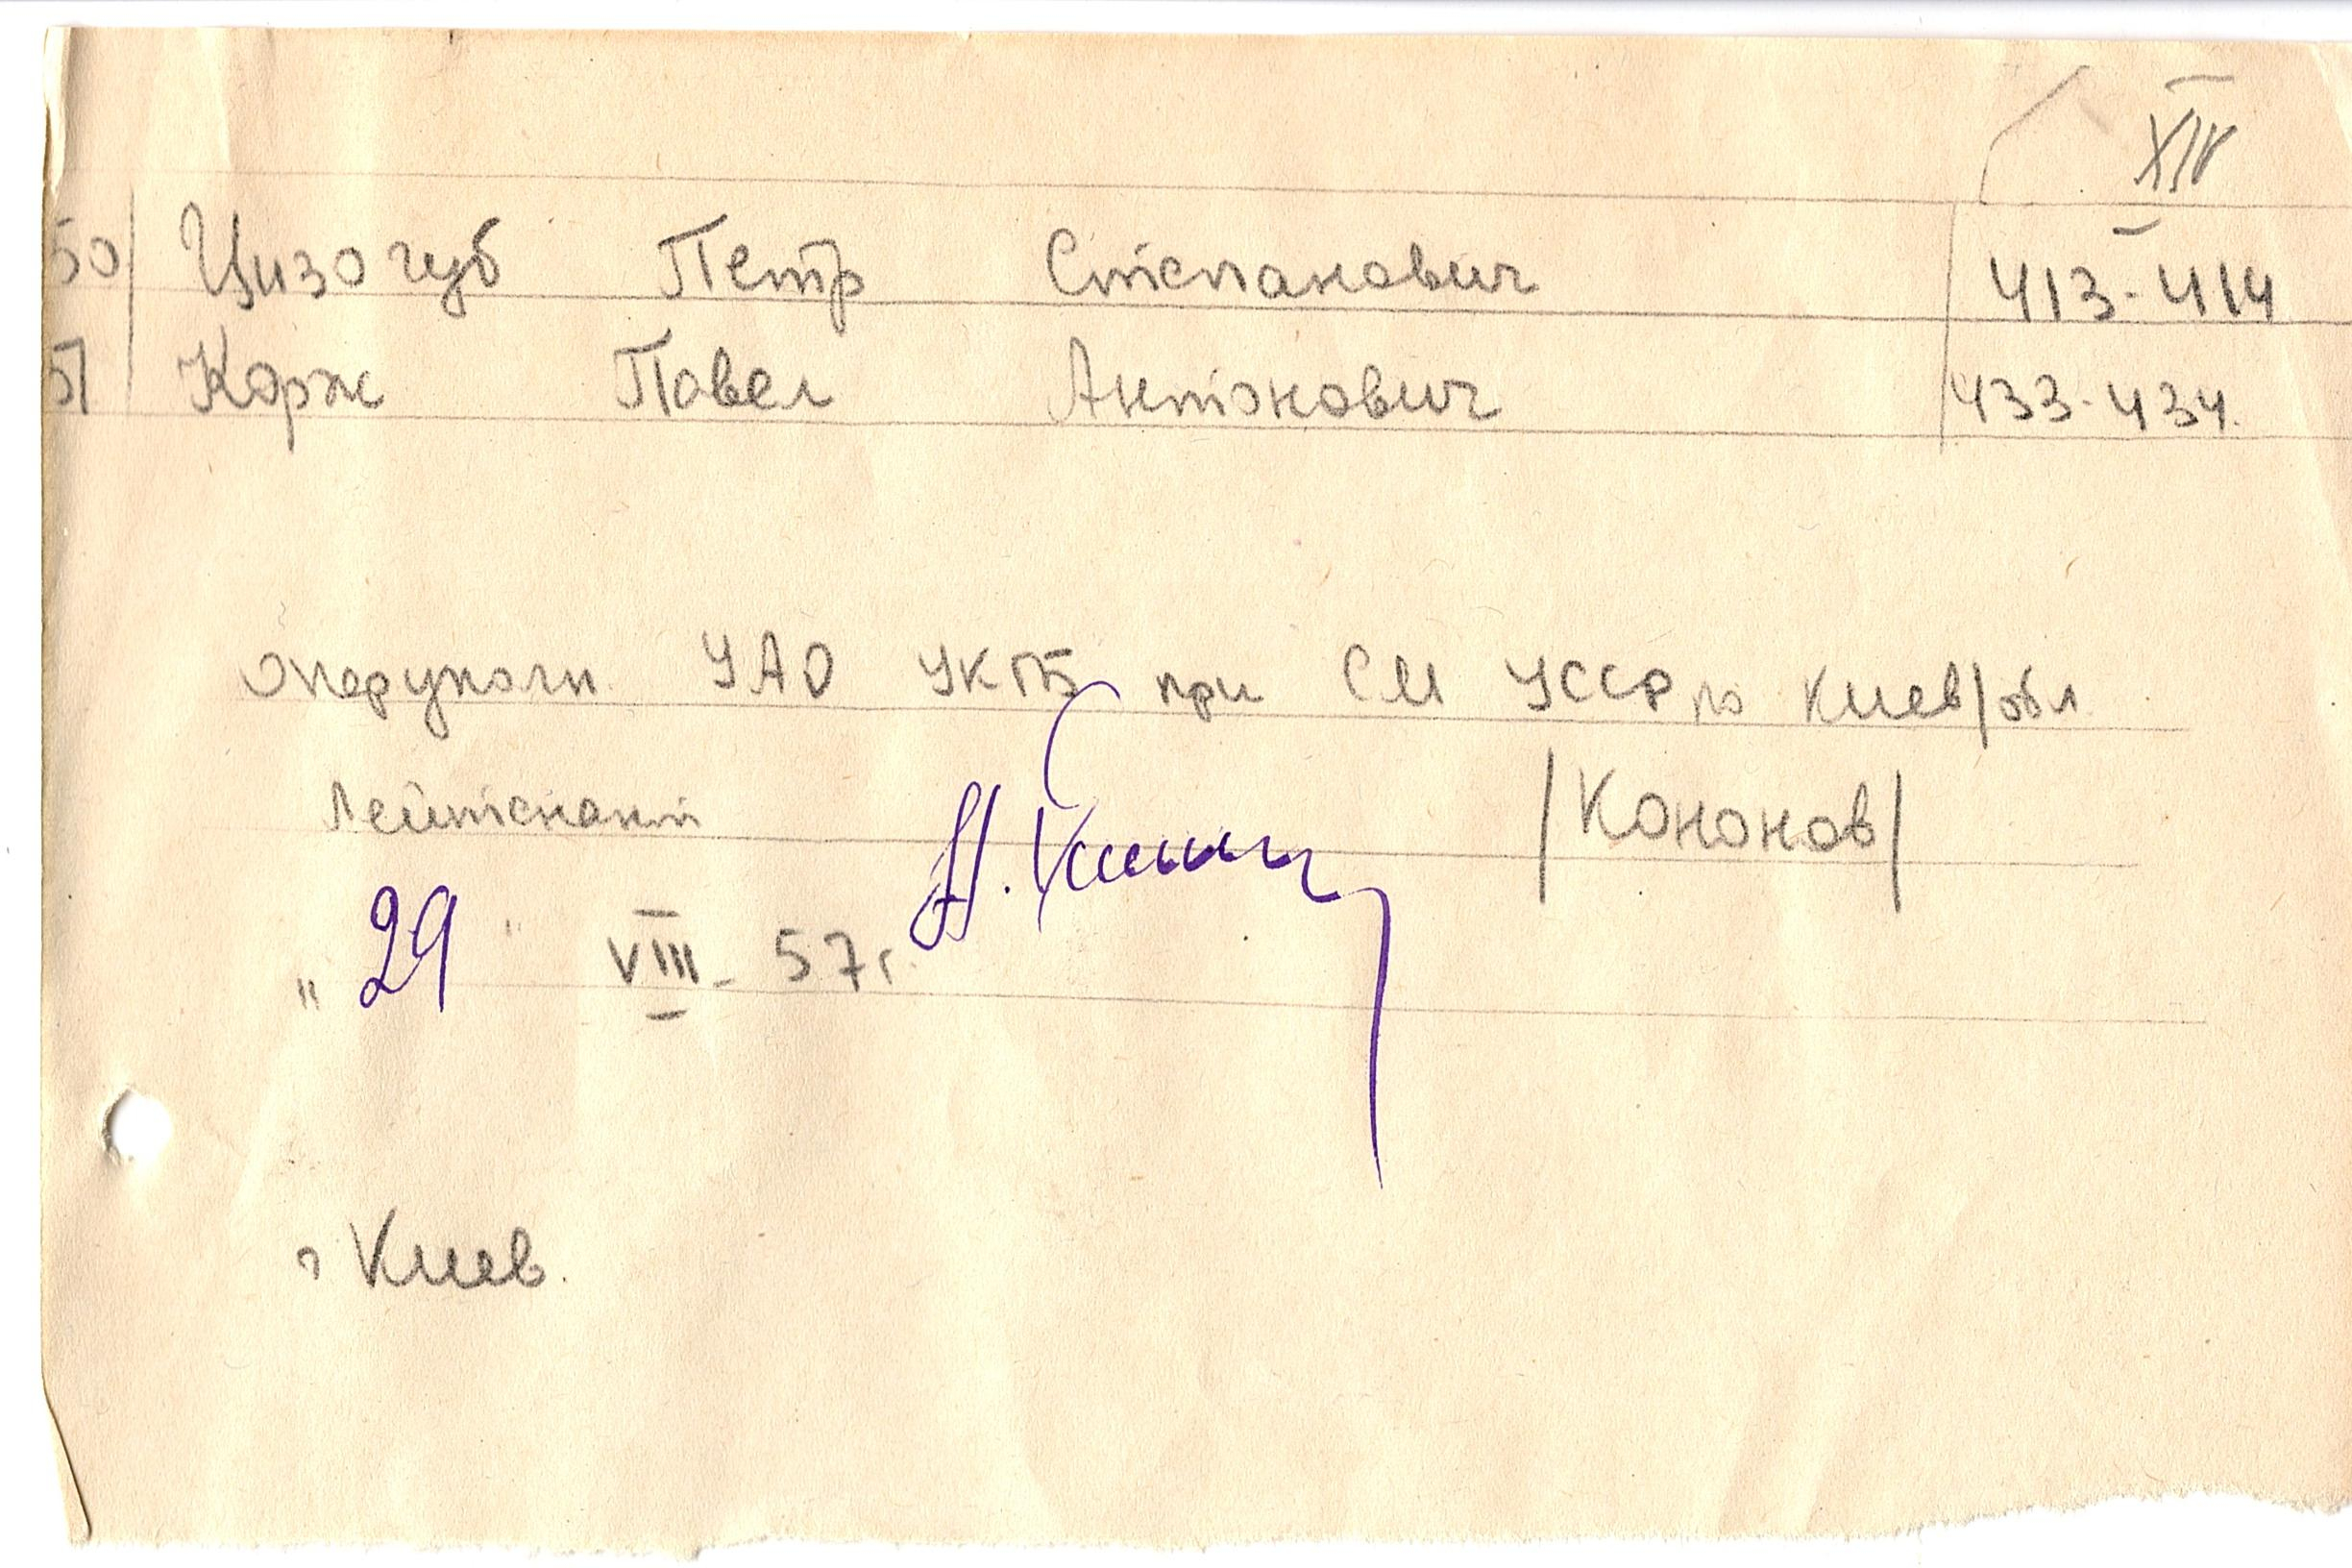 XIV
50 Цизогуб Петр Степанович 413-414
51 Корж Павел Антонович 433-434.
Оперуполн. УАО УКГБ при СМ УССР по Киев/обл
Лейтенант /Кононов/
"29" VIII - 57г.
г Киев.